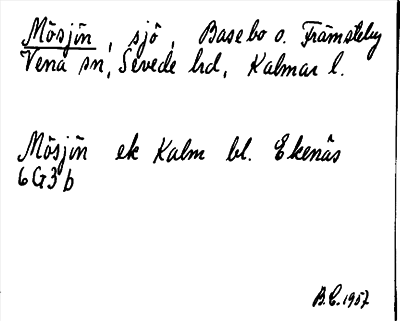 Mösjön, sjö, Basebo o. Främsteby
Vena sn, Sevede hd, Kalmar l.
Mösjön ek Kalm bl. Ekenäs
6G3b
B.C. 1957